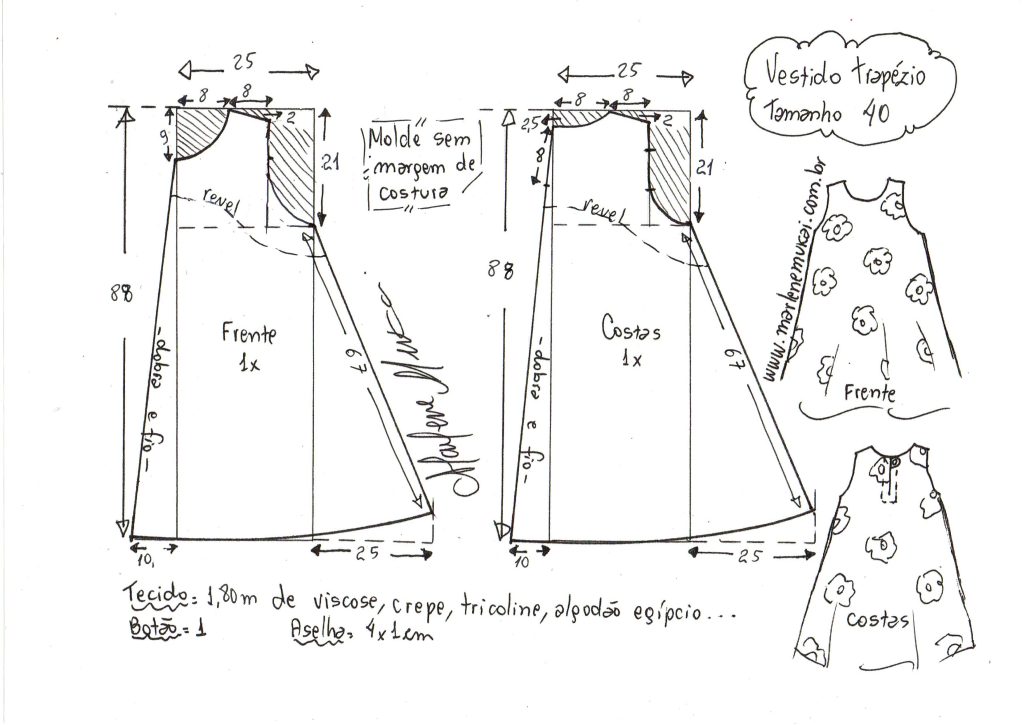 Vestido trapézio
Tamanho 40
25
8 8
2
9
21
88
revel
67
Frente
1x
-dobra e fio-
10
25
Molde sem
margem de
costura
25
8 8
2
2,5
8
21
88
revel
67
Costas
1x
-dobra e fio-
10
25
www.marlenemukai.com.br
Frente
Costas
Marlene Mukai
Tecido= 1,80m de viscose, crepe, tricoline, algodão egípcio...
Botão= 1 Aselha= 4x1cm